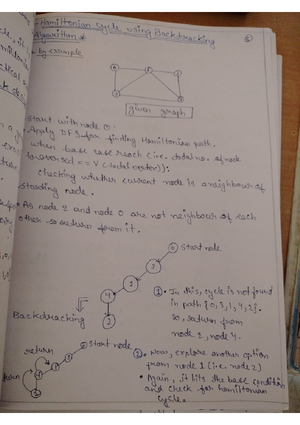 - Hamiltonian Cycle using Backtracking
Algorithm *
• by example
given graph
• Start with node 0.
• Apply DFS for finding Hamiltonian path.
when base case reach (i.e. total no. of node
traversed == V (total vertex)):
checking whether current node is a neighbour of
starting node.
• As node 2 and node 0 are not neighbour of each
other so return from it.
0 start node
3
1
4
2
Backtracking
1. • In this, cycle is not found
in path {0,3,1,4,2}.
so, return from
node 2, node 4.
return
start node
return
2. • Now, explore another option
from node 1 (i.e. node 2)
• Again, it hits the base condition
and check for hamiltonian
cycle.